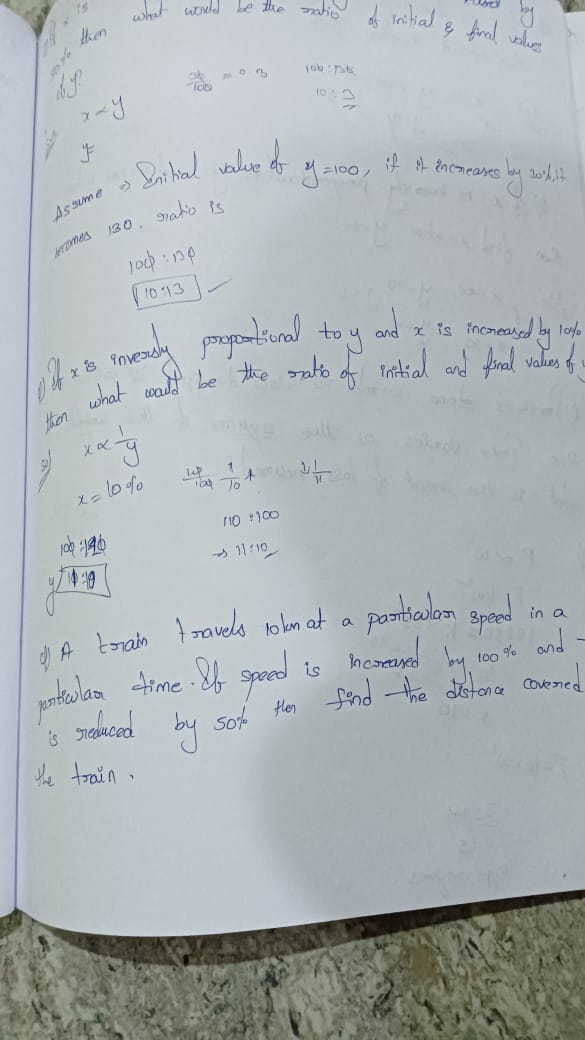 x is by
30% then what would be the ratio of initial & final values
of y?
x ∝ y
30/100 = 0.3 100:130
10:3
y
Assume → Initial value of y=100, if it increases by 30%, it
becomes 130, ratio is
100:130
10:13
Q) If x is inversly proportional to y and x is increased by 10%
then what would be the ratio of initial and final values of
x ∝ 1/y
x = 10%
110:100
→ 11:10
y
Q) A train travels 10km at a particular speed in a
particular time. If speed is increased by 100% and
is reduced by 50% then find the distance covered
the train.